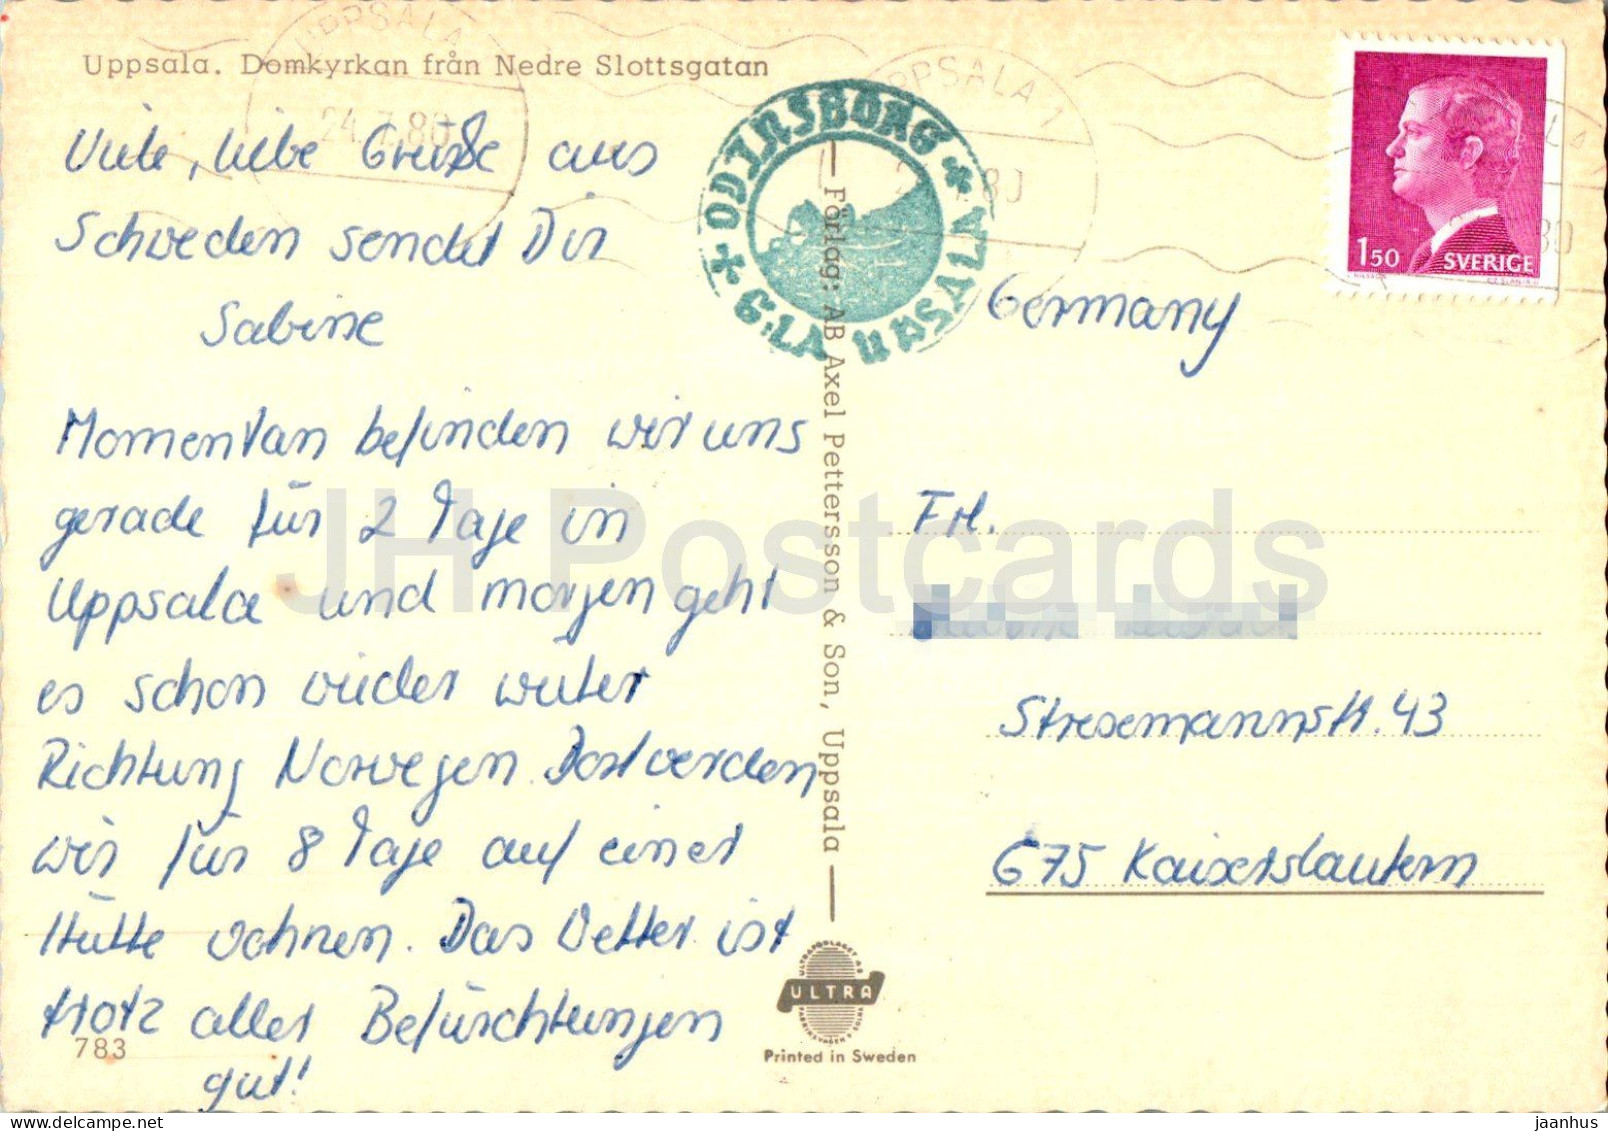 Uppsala. Domkyrkan från Nedre Slottsgatan
UPPSALA
24.7.80
UPPSALA 1
80
ODINSBORG
G:LA UPSALA
1 50
SVERIGE
Viele, liebe Grüße aus
Schweden sendet Dir
Sabine
Momentan befinden wir uns
gerade für 2 Tage in
Uppsala und morgen geht
es schon wieder weiter
Richtung Norwegen. Dort werden
wir für 8 Tage auf einer
Hütte wohnen. Das Wetter ist
trotz aller Befürchtungen
gut!
783
Förlag: AB Axel Pettersson & Son, Uppsala
ULTRA
Printed in Sweden
Germany
Frl.
Stresemannstr. 43
675 Kaiserslautern
JH Postcards
jaanhus